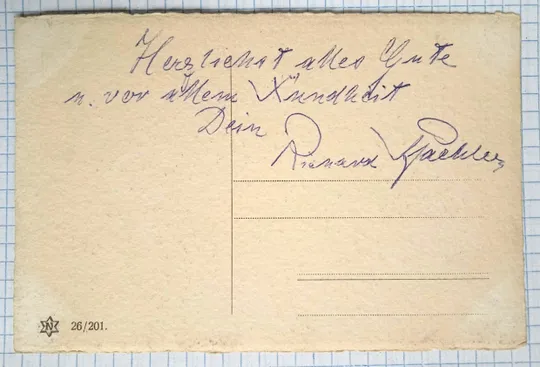 Herzlichst alles Gute
u. vor allem Xundheit
Dein
Richard
N 26/201.